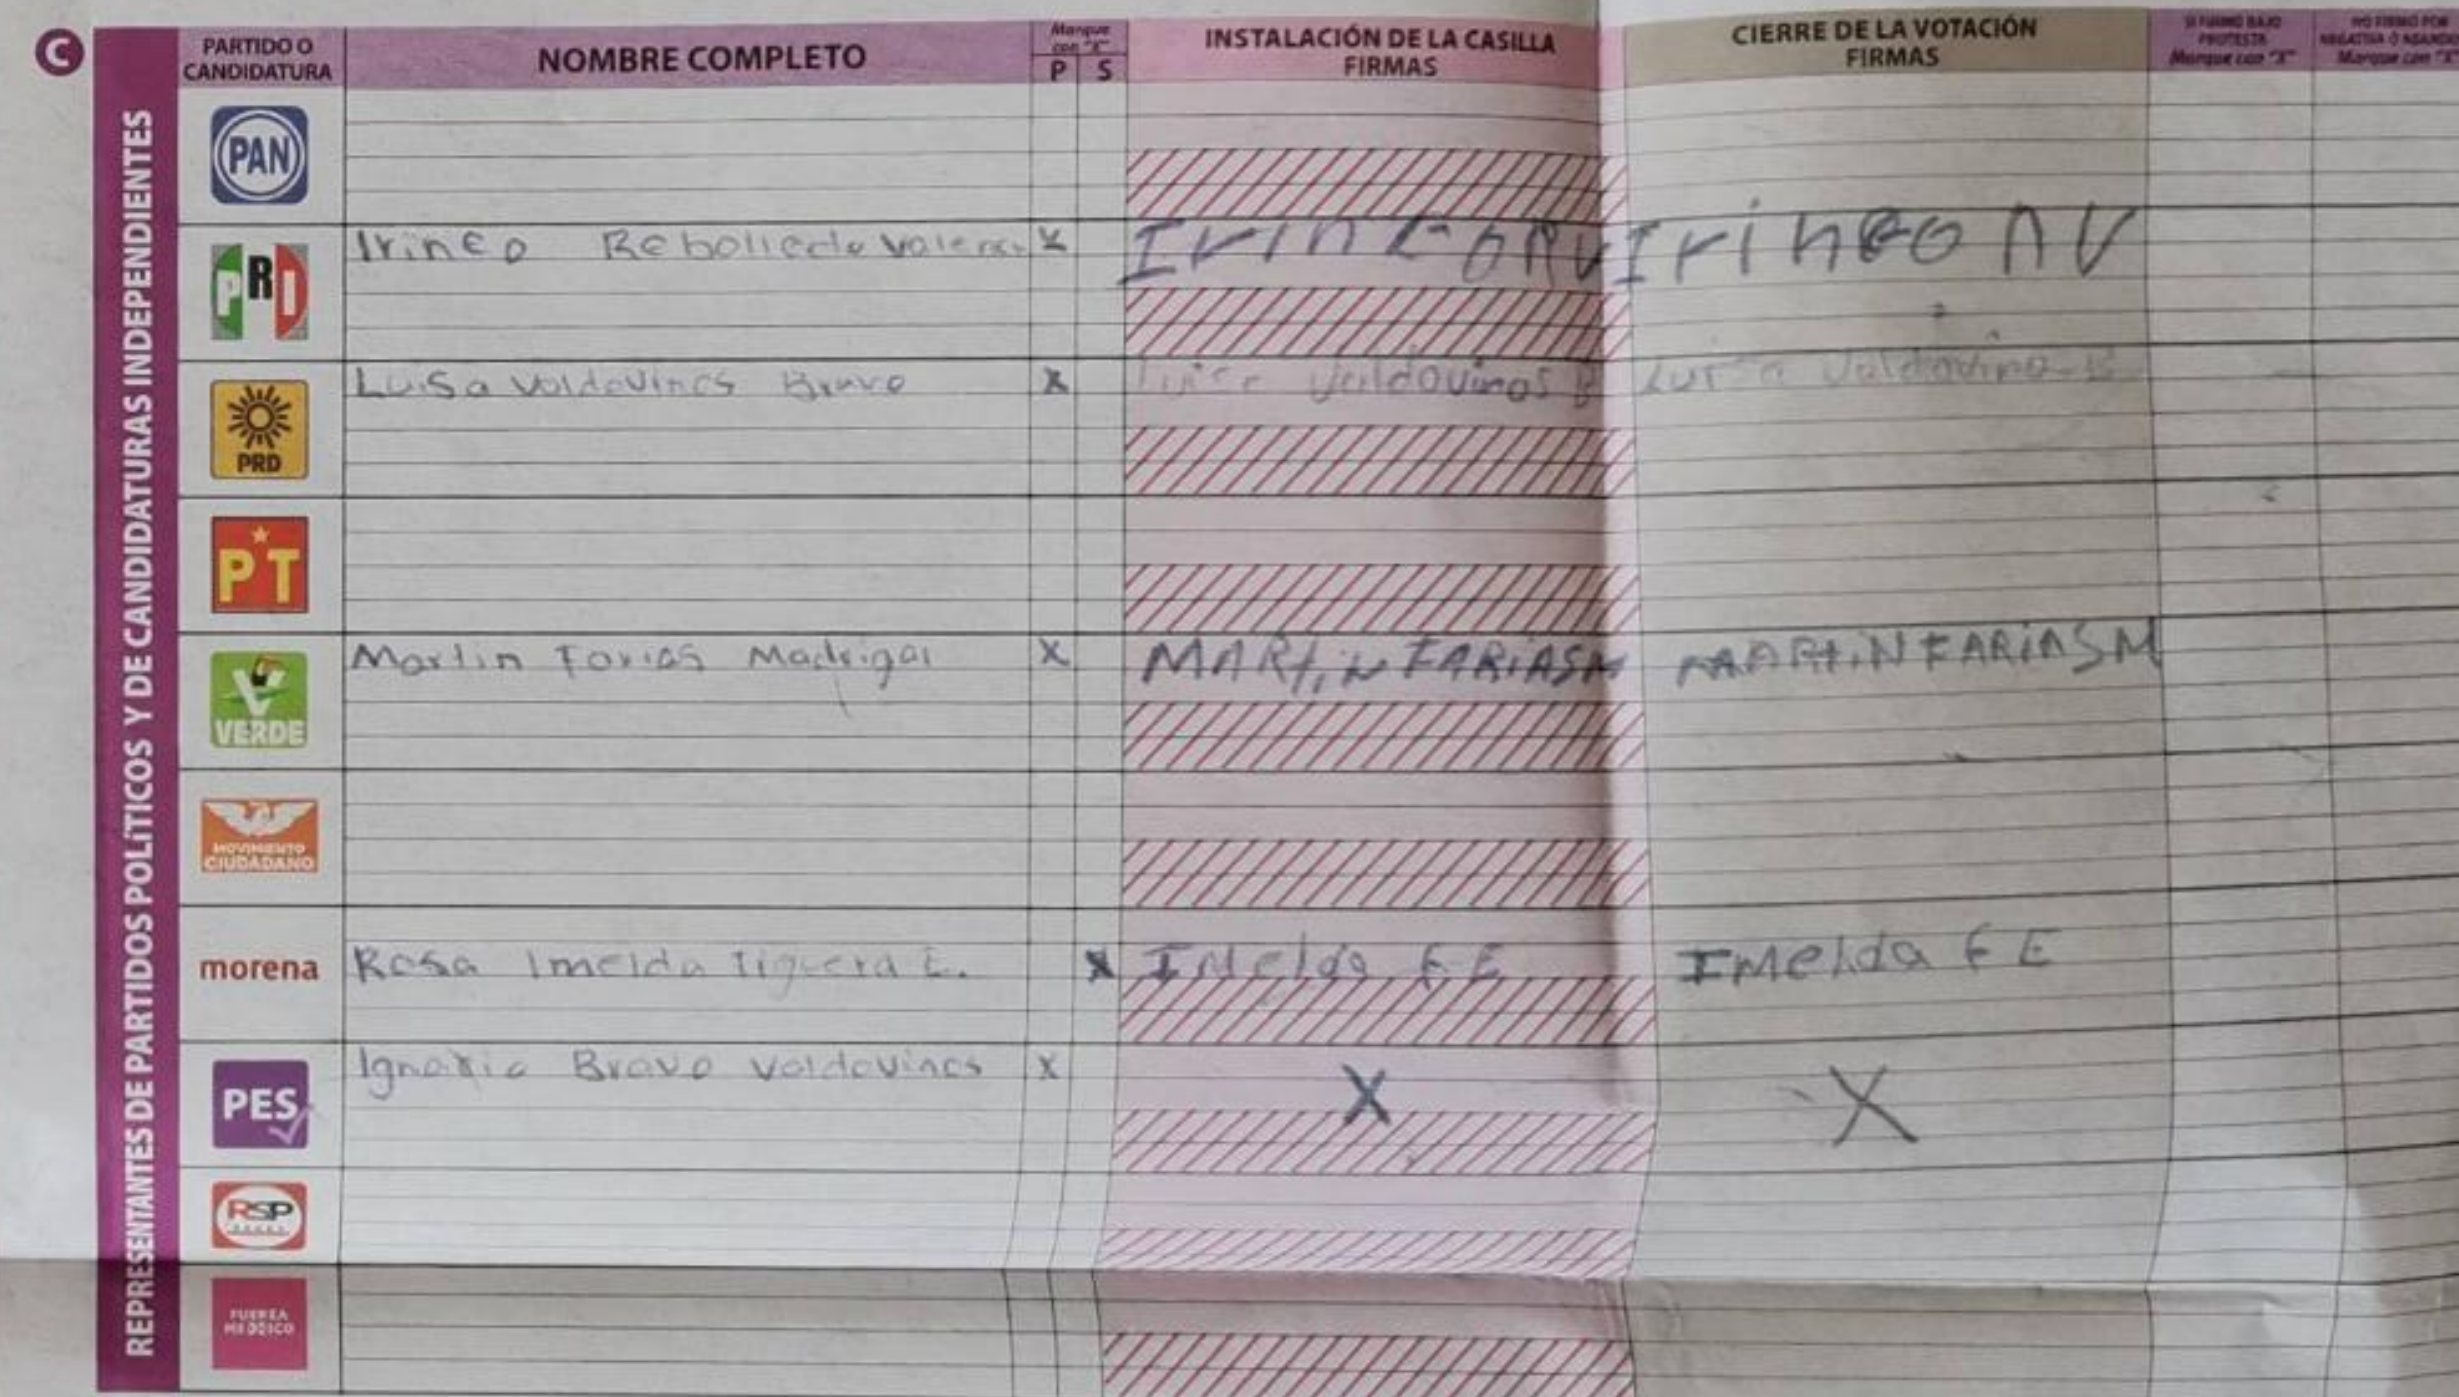 C
REPRESENTANTES DE PARTIDOS POLÍTICOS Y DE CANDIDATURAS INDEPENDIENTES
PARTIDO O CANDIDATURA
NOMBRE COMPLETO
Marque con "X"
P S
INSTALACIÓN DE LA CASILLA
FIRMAS
CIERRE DE LA VOTACIÓN
FIRMAS
SI FIRMÓ BAJO PROTESTA
Marque con "X"
NO FIRMÓ POR NEGATIVA O
Marque con "X"
PAN
PRI Irineo Rebolledo X Irineo RV Irineo RV
PRD Luisa Valdovinos Bravo X Valdovinos B Luisa Valdovinos B
PT
VERDE Martin Farias Madrigal X MARtiN FARiASM MARtiN FARiASM
MOVIMIENTO CIUDADANO
morena Rosa Imelda Figueroa E. X IMelda F E IMelda F E
PES Ignacio Bravo Valdovinos X X X
RSP
FUERZA MÉXICO